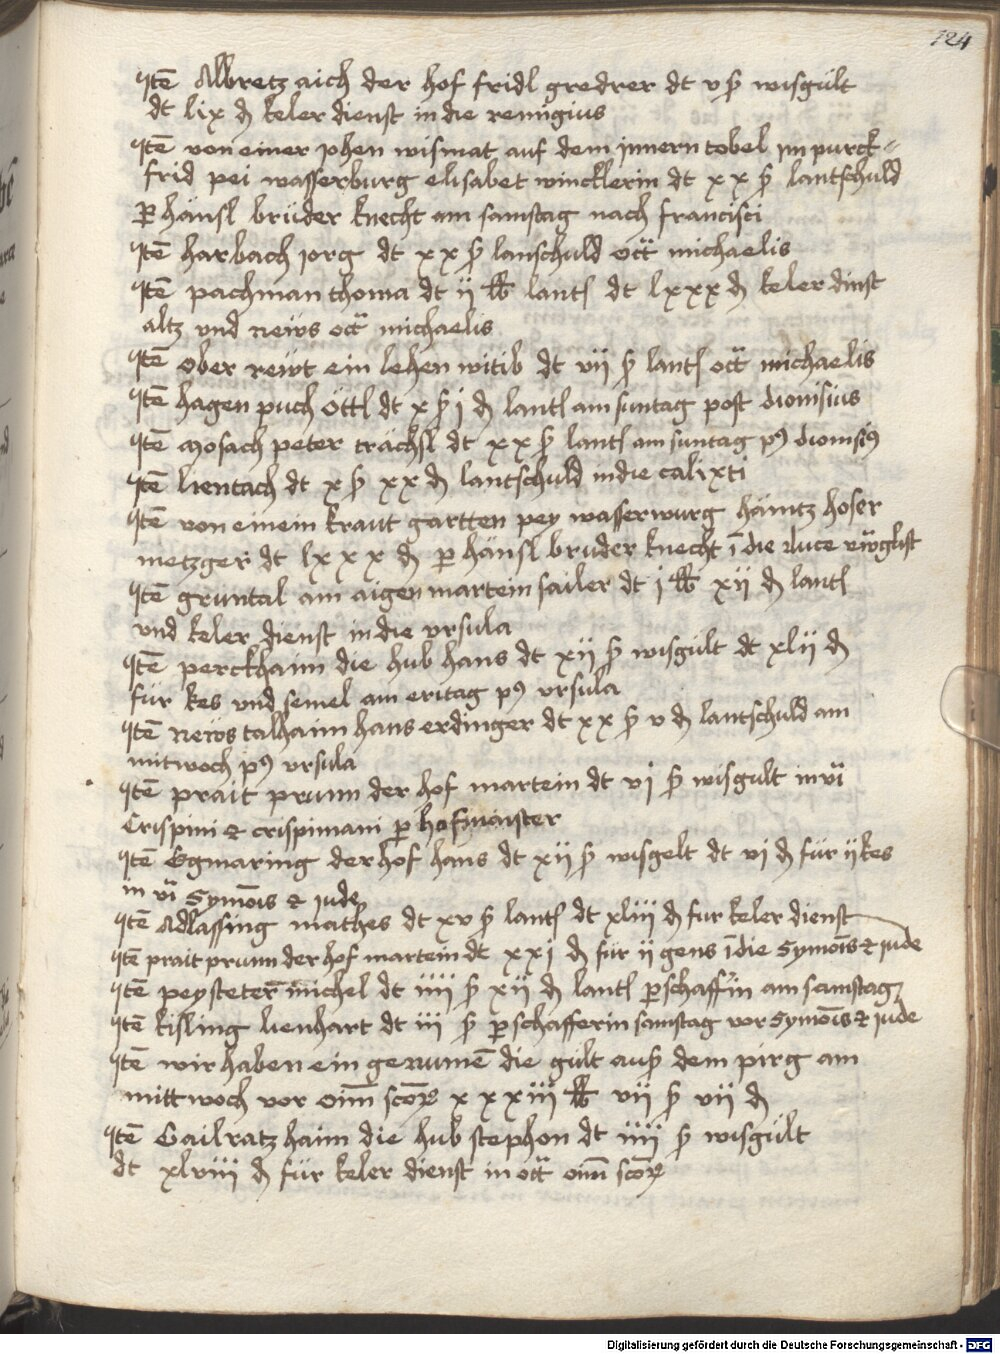 124
Itē Albretz aich der hof fridl gredrer dt v ß wisgült
dt lix ₰ keler dienst in die remigius
Itē von einer johen wismat auf dem jnnern tobel im purck=
frid pei wasserburg elisabet wincklerin dt xx ß lantschuld
ꝑ hänsl brüder knecht am samstag nach francisci
Itē harbach jorg dt xx ß lanschuld oct̄ michaelis
Itē pachman thoma dt ij ℔ lantſ dt lxxx ₰ keler dinst
altz vnd news oct̄ michaelis
Itē ober rewt ein lehen witib dt vii ß lantſ oct̄ michaelis
Itē hagen puch öttl dt x ß j ₰ lantſ am suntag post dionisius
Itē mosach peter trächsl dt xx ß lantſ am suntag pꝰ dionisiꝰ
Itē lientach dt x ß xx ₰ lantschuld in die calixti
Itē von einem kraut gartten pey wasserwurg häintz hoser
metzger dt lxxx ₰ ꝑ hänsl bruder knecht ī die luce ewg̃list
Itē gruntal am aigen martein sailer dt j ℔ xij ₰ lantſ
vnd keler dienst in die vrsula
Itē perckhaim die hub hans dt xij ß wisgült dt xlij ₰
für kes vnd semel am eritag pꝰ vrsula
Itē news talhaim hans erdinger dt xx ß v ₰ lantschuld am
mitwoch pꝰ vrsula
Itē prait prunn der hof martein dt vj ß wisgult in vī
Crispini & crispiniani ꝑ hofmaister
Itē Egmaring der hof hans dt xij ß wisgelt dt vj ₰ für ij kes
in vī Symōis & jude
Itē Adlassing mathes dt xv ß lantſ dt xliii ₰ fur keler dienst
Itē prait prunn der hof martein dt xxj ₰ für ij gens ī die Symōis & jude
Itē peysteter michel dt iiii ß xij ₰ lantſ ꝑ schaff̄in am samstag
Itē kisling lienhart dt iii ß ꝑ schafferin samstag vor Symōis & jude
Itē wir haben ein genumē die gült auß dem pirg am
mittwoch vor oīm scōꝝ xxxiii ℔ vii ß vii ₰
Itē Gailratz haim die hub stephon dt iiij ß wisgült
dt xlviii ₰ für keler dienst in oct̄ oīm scōꝝ
Digitalisierung gefördert durch die Deutsche Forschungsgemeinschaft - DFG